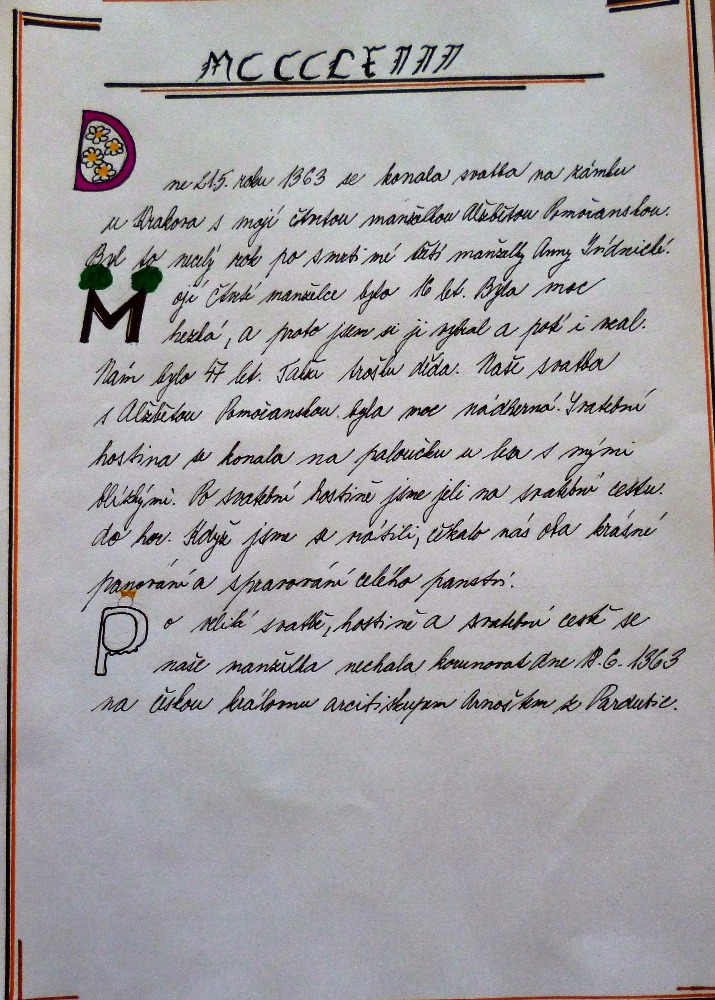 MCCCLXIII
Dne 21.5. roku 1363 se konala svatba na zámku
u Krakova s mojí čtvrtou manželkou Alžbětou Pomořanskou.
Byl to necelý rok po smrti mé třetí manželky Anny Svídnické.
Mojí čtvrté manželce bylo 16 let. Byla moc
hezká, a proto jsem si ji vybral a poté i vzal.
Nám bylo 47 let. Takže trošku děda. Naše svatba
s Alžbětou Pomořanskou byla moc nádherná. Svatební
hostina se konala na paloučku u lesa s mými
blízkými. Po svatební hostině jsme jeli na svatební cestu
do hor. Když jsme se vrátili, čekalo nás oba krásné
panování a spravování celého panství.
Po veliké svatbě, hostině a svatební cestě se
naše manželka nechala korunovat dne 18.6. 1363
na českou královnu arcibiskupem Arnoštem z Pardubic.